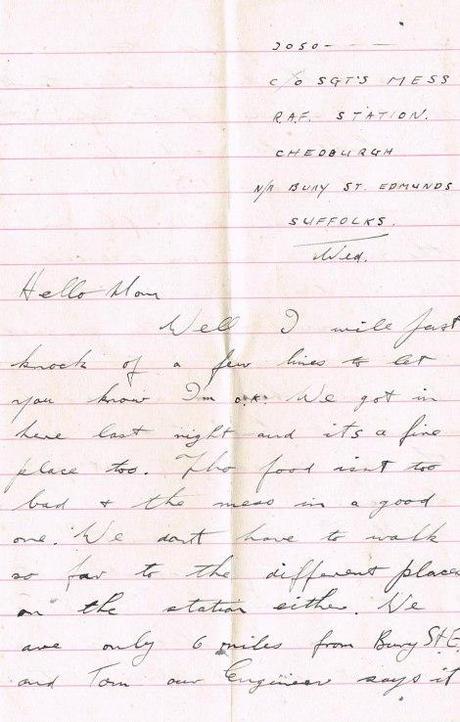 2050 - - -
C/O SGT'S MESS
R.A.F. STATION.
CHEDBURGH
N/R BURY ST. EDMUNDS
SUFFOLKS.
Wed.
Hello Mom
Well I will just
knock of a few lines to let
you know I'm o.k. We got in
here last night and its a fine
place too. Tho food isnt too
bad & the mess is a good
one. We dont have to walk
so far to the different places
on the station either. We
are only 6 miles from Bury St. E.
and Tom our Engineer says it